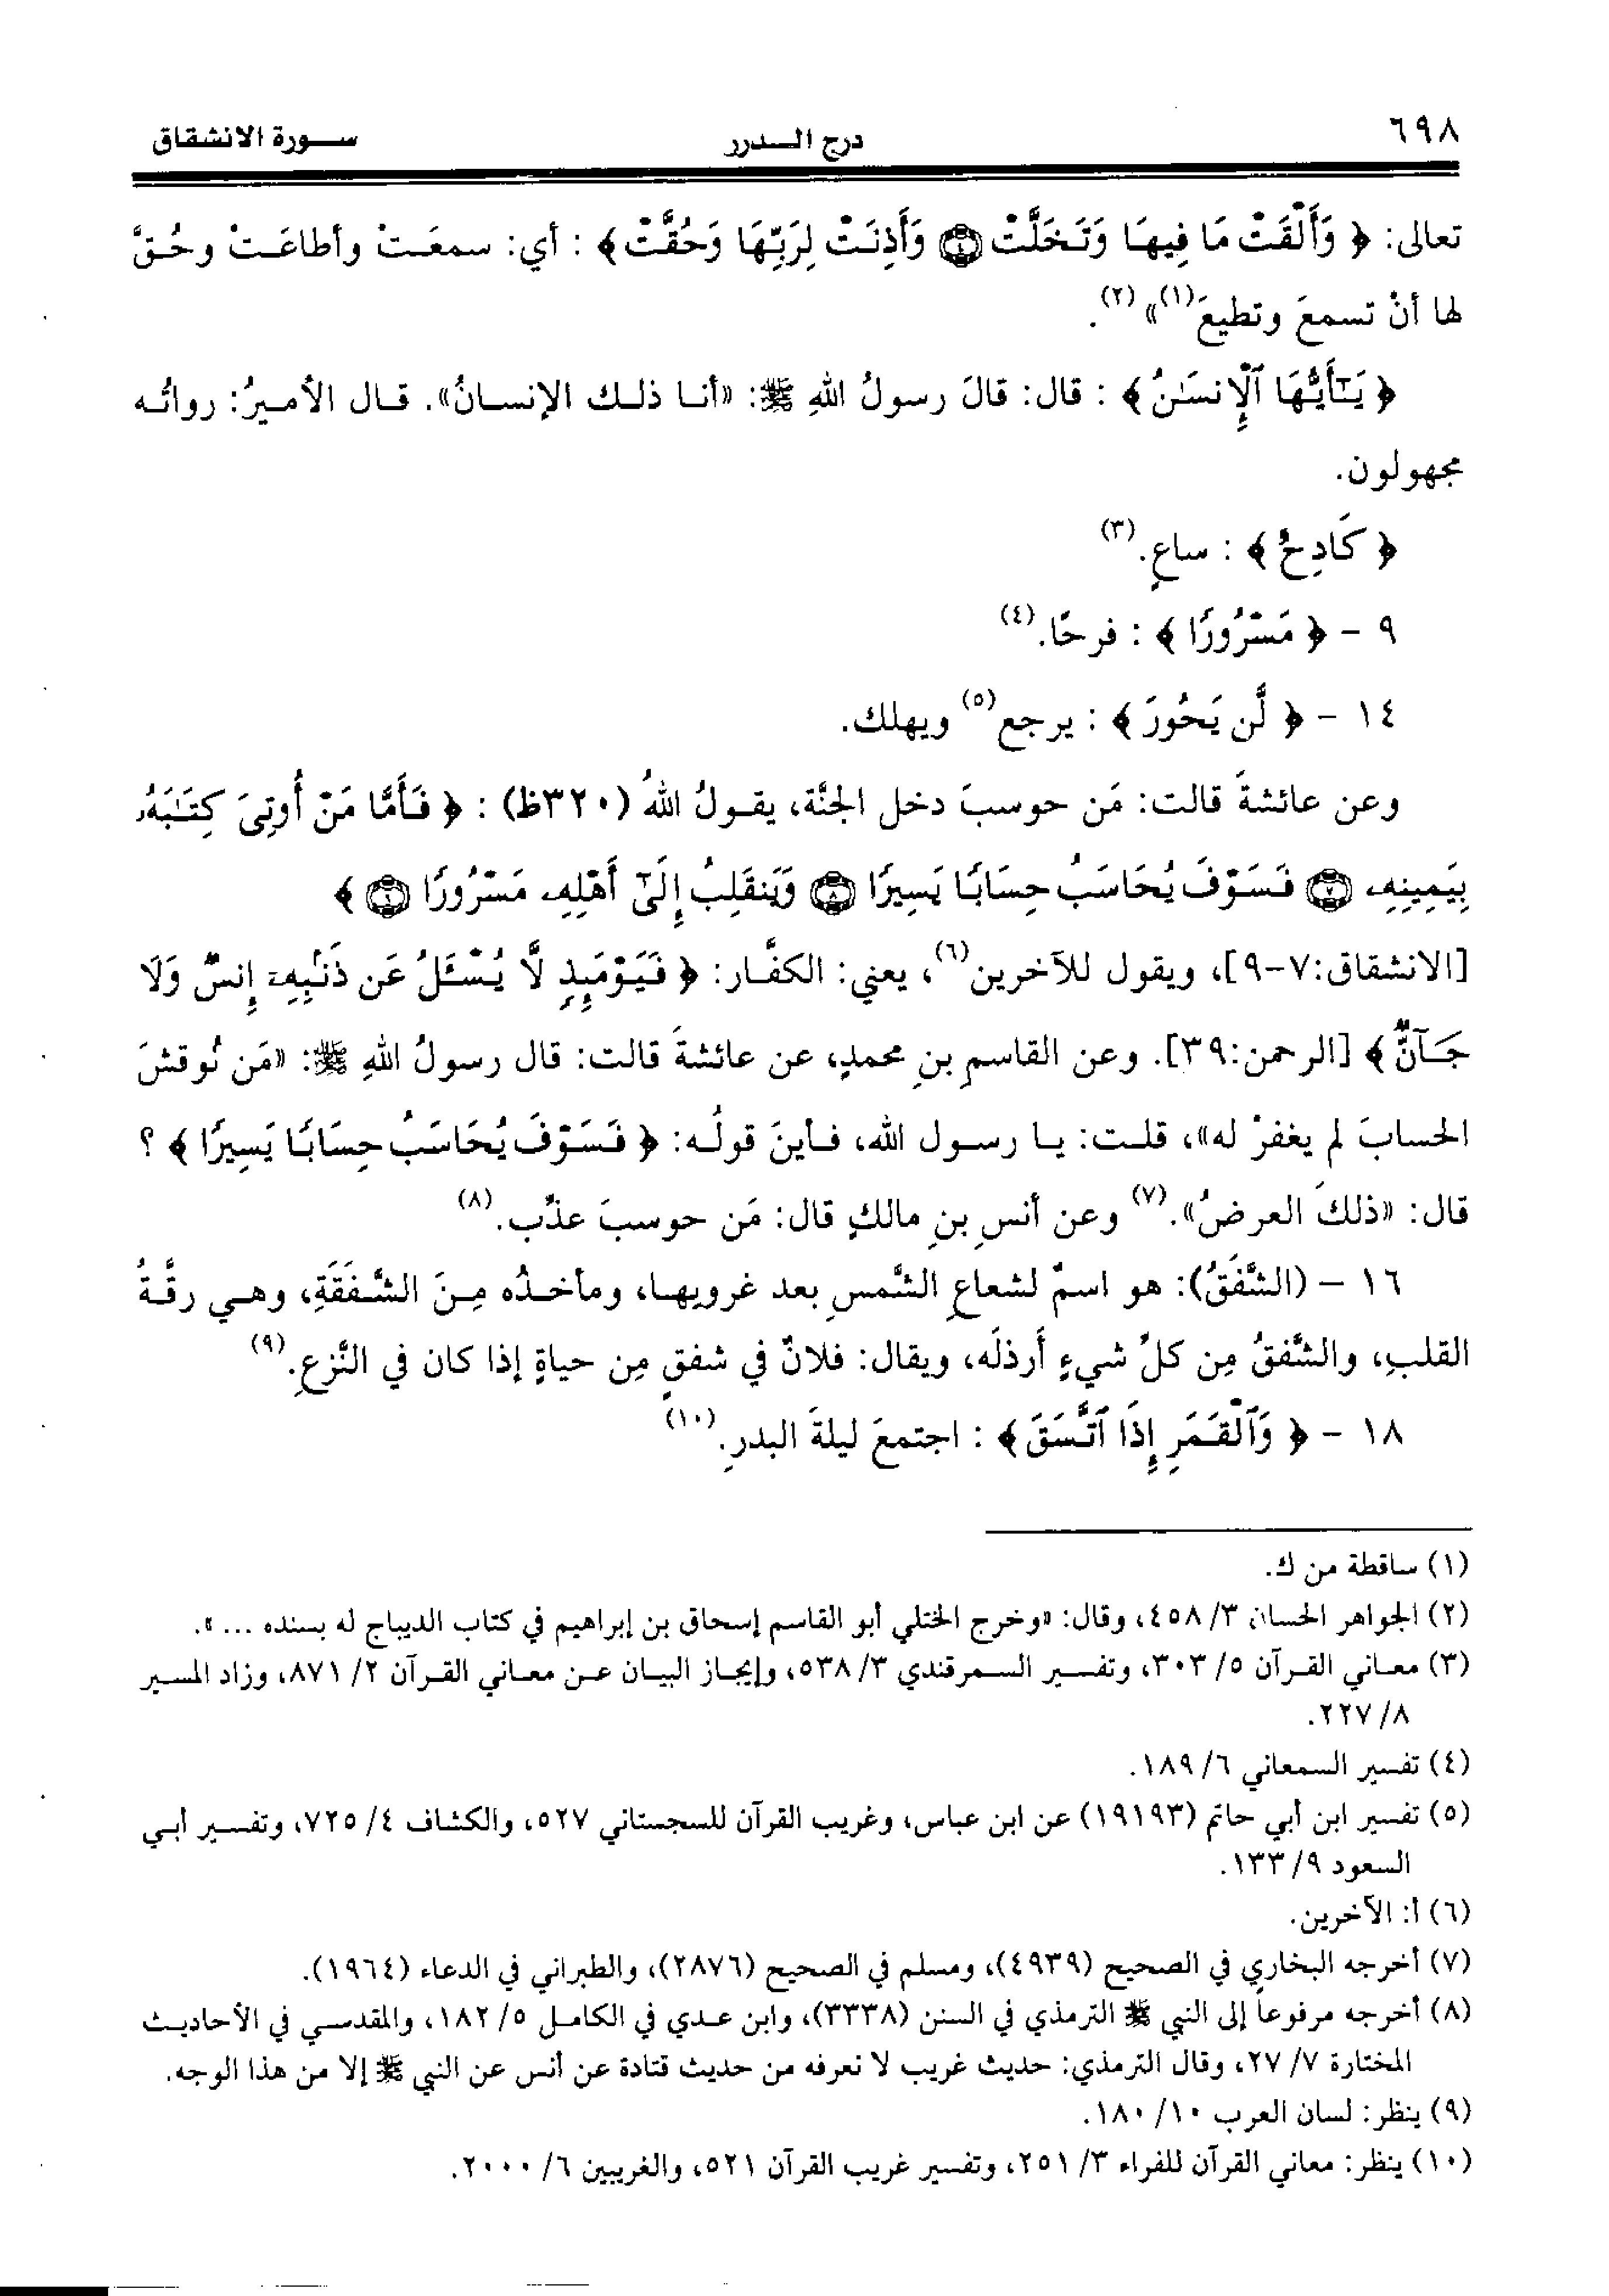 ٦٩٨ درج الـدرر سـورة الانشقاق
تعالى: ﴿ وَأَلْقَتْ مَا فِيهَا وَتَخَلَّتْ ۝٤ وَأَذِنَتْ لِرَبِّهَا وَحُقَّتْ ﴾ : أي: سمعَتْ وأطاعَتْ وحُقَّ
لها أنْ تسمعَ وتطيعَ(١)»(٢).
﴿ يَٰٓأَيُّهَا ٱلْإِنسَٰنُ ﴾ : قال: قالَ رسولُ اللهِ ﷺ: «أنا ذلك الإنسانُ». قال الأميرُ: رواتُه
مجهولون.
﴿ كَادِحٌ ﴾ : ساعٍ.(٣)
٩ – ﴿ مَسْرُورًا ﴾ : فرحًا.(٤)
١٤ – ﴿ لَّن يَحُورَ ﴾ : يرجع(٥) ويهلك.
وعن عائشةَ قالت: مَن حوسبَ دخل الجنَّة، يقولُ اللهُ (٣٢٠ظ) : ﴿ فَأَمَّا مَنْ أُوتِىَ كِتَٰبَهُۥ
بِيَمِينِهِۦ ۝٧ فَسَوْفَ يُحَاسَبُ حِسَابًا يَسِيرًا ۝٨ وَيَنقَلِبُ إِلَىٰٓ أَهْلِهِۦ مَسْرُورًا ۝٩ ﴾
[الانشقاق:٧-٩]، ويقول للآخرين(٦)، يعني: الكفَّار: ﴿ فَيَوْمَئِذٍ لَّا يُسْـَٔلُ عَن ذَنۢبِهِۦٓ إِنسٌ وَلَا
جَآنٌّ ﴾ [الرحمن:٣٩]. وعن القاسمِ بنِ محمدٍ، عن عائشةَ قالت: قال رسولُ اللهِ ﷺ: «مَن نُوقشَ
الحسابَ لم يغفرْ له»، قلت: يا رسول الله، فأينَ قولُه: ﴿ فَسَوْفَ يُحَاسَبُ حِسَابًا يَسِيرًا ﴾ ؟
قال: «ذلكَ العرضُ».(٧) وعن أنسِ بنِ مالكٍ قال: مَن حوسبَ عذِّب.(٨)
١٦ – (الشَّفَقُ): هو اسمٌ لشعاعِ الشَّمسِ بعد غروبها، ومأخذُه مِنَ الشَّفَقَةِ، وهي رقَّةُ
القلبِ، والشَّفقُ مِن كلِّ شيءٍ أرذلَه، ويقال: فلانٌ في شفقٍ مِن حياةٍ إذا كان في النَّزعِ.(٩)
١٨ – ﴿ وَٱلْقَمَرِ إِذَا ٱتَّسَقَ ﴾ : اجتمعَ ليلةَ البدرِ.(١٠)
(١) ساقطة من ك.
(٢) الجواهر الحسان ٣/ ٤٥٨، وقال: «وخرج الختلي أبو القاسم إسحاق بن إبراهيم في كتاب الديباج له بسنده ... ».
(٣) معاني القرآن ٥/ ٣٠٣، وتفسير السمرقندي ٣/ ٥٣٨، وإيجاز البيان عن معاني القرآن ٢/ ٨٧١، وزاد المسير
٨/ ٢٢٧.
(٤) تفسير السمعاني ٦/ ١٨٩.
(٥) تفسير ابن أبي حاتم (١٩١٩٣) عن ابن عباس، وغريب القرآن للسجستاني ٥٢٧، والكشاف ٤/ ٧٢٥، وتفسير أبي
السعود ٩/ ١٣٣.
(٦) أ: الآخرين.
(٧) أخرجه البخاري في الصحيح (٤٩٣٩)، ومسلم في الصحيح (٢٨٧٦)، والطبراني في الدعاء (١٩٦٤).
(٨) أخرجه مرفوعاً إلى النبي ﷺ الترمذي في السنن (٣٣٣٨)، وابن عدي في الكامل ٥/ ١٨٢، والمقدسي في الأحاديث
المختارة ٧/ ٢٧، وقال الترمذي: حديث غريب لا نعرفه من حديث قتادة عن أنس عن النبي ﷺ إلا من هذا الوجه.
(٩) ينظر: لسان العرب ١٠/ ١٨٠.
(١٠) ينظر: معاني القرآن للفراء ٣/ ٢٥١، وتفسير غريب القرآن ٥٢١، والغريبين ٦/ ٢٠٠٠.